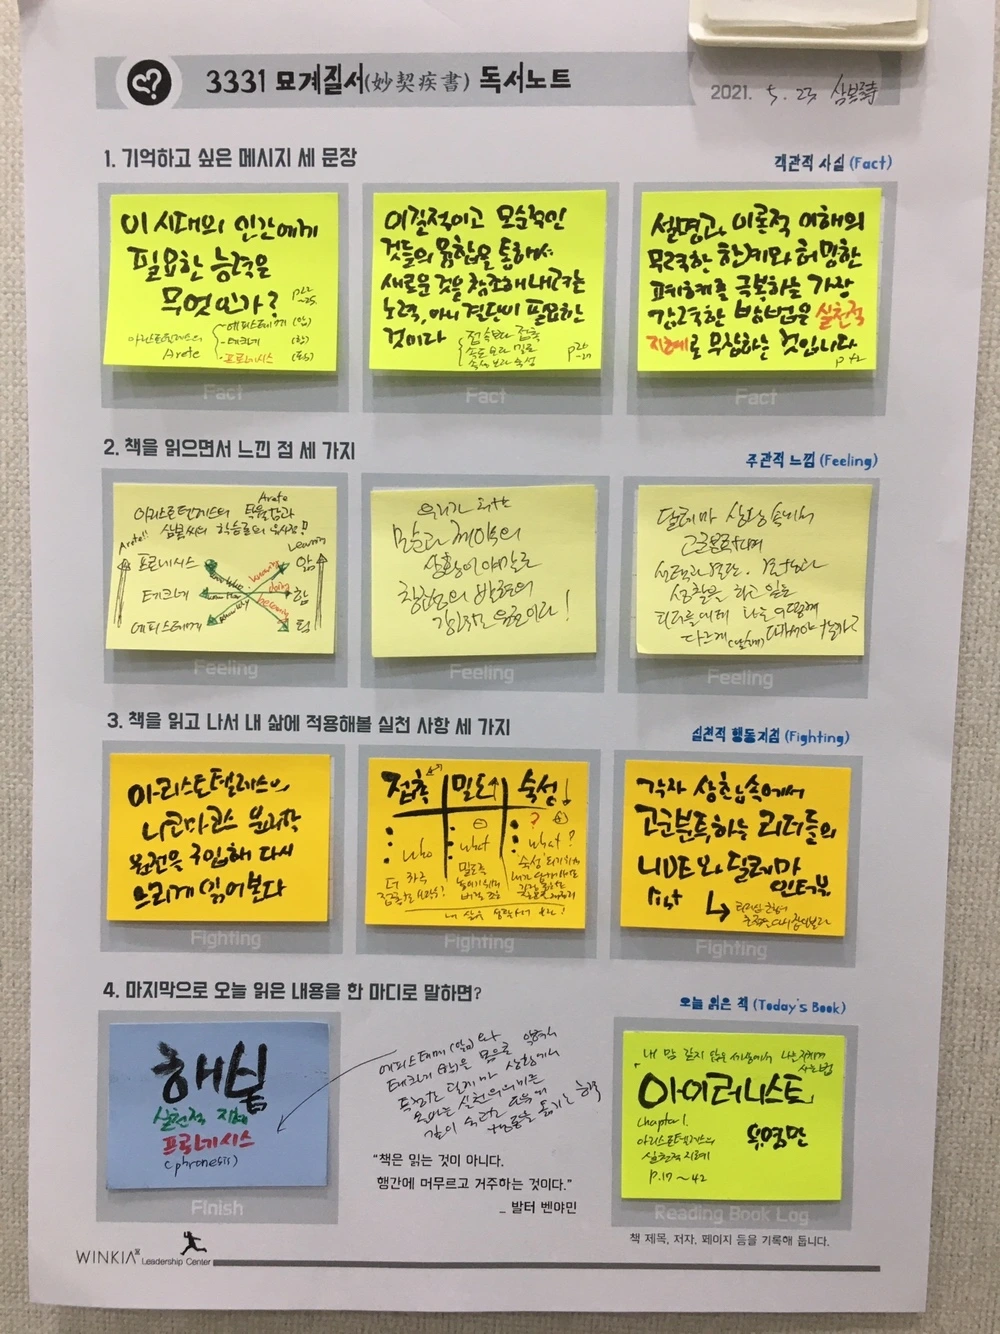 3331 묘계질서(妙契疾書) 독서노트
2021. 5. 23
1. 기억하고 싶은 메시지 세 문장
객관적 사실 (Fact)
이 시대의 인간에게
필요한 능력은
무엇인가?
p22
~25
아리스토텔레스의
Arete
- 에피스테메 (앎)
- 테크네 (함)
- 프로네시스
Fact
이질적이고 모순적인
것들의 융합을 통해서
새로운 것을 창조해내려는
노력, 아니 결단이 필요한
것이다
접속보다 접촉
속도보다 밀도
숙성
p26
-27
Fact
설명과 이론적 이해의
무력한 한계와 허망한
폐해를 극복하는 가장
강력한 방법은 실천적
지혜로 무장하는 것입니다
p42
Fact
2. 책을 읽으면서 느낀 점 세 가지
주관적 느낌 (Feeling)
Arete
아리스토텔레스의 탁월함과
학습론의 유사점!!
Arete!!
Learning
프로네시스
앎
테크네
함
에피스테메
됨
knowing
doing
Feeling
우리가 처한
모순과 제약의
상황이야말로
창조성의 발현의
원료이다!
Feeling
딜레마 상황 속에서
고군분투하며
성찰을 하고 있는
리더들에게 나는 어떻게
다르게 대해야 할까?
Feeling
3. 책을 읽고 나서 내 삶에 적용해볼 실천 사항 세 가지
실천적 행동지침 (Fighting)
아리스토텔레스의
니코마코스 윤리학
원전을 구입해 다시
느리게 읽어본다
Fighting
접촉 밀도↑ 숙성!
who
what
?
what?
더 자주
밀도를
Fighting
각자 상황 속에서
고군분투하는 리더들의
NDE와 딜레마
인터뷰
list
Fighting
4. 마지막으로 오늘 읽은 내용을 한 마디로 말하면?
오늘 읽은 책 (Today's Book)
해봄
실천적 지혜
프로네시스
(phronesis)
Finish
에피스테메 (앎)와
테크네 (함)은 몸으로
특정한 딜레마 상황에서
"책은 읽는 것이 아니다.
행간에 머무르고 거주하는 것이다."
_ 발터 벤야민
내 맘 같지 않은 세상에서 나를 지키며
사는 법
아이러니스트
chapter 1.
아리스토텔레스의
실천적 지혜
유영만
p.17 ~ 42
Reading Book Log
책 제목, 저자, 페이지 등을 기록해 둡니다.
WINKIA Leadership Center